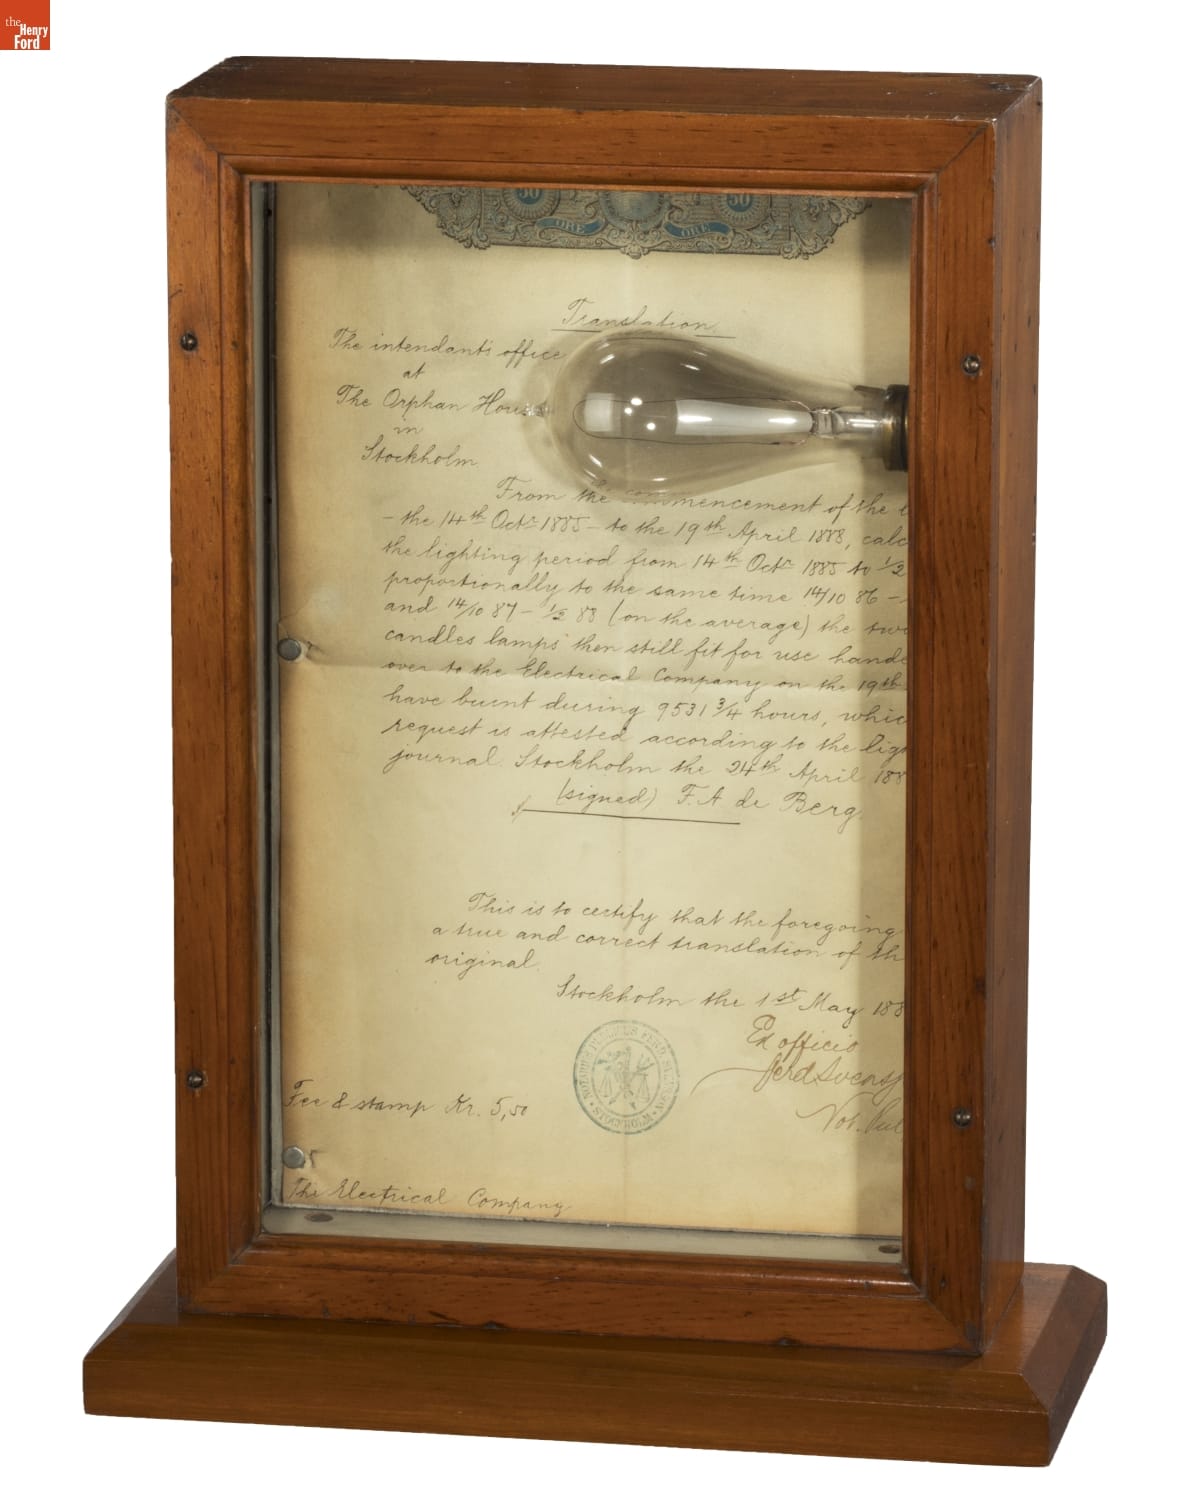 the
Henry
Ford
50 50
ÖRE ÖRE
Translation.
The intendant's office
at
The Orphan House
in
Stockholm
From the commencement of the
- the 14th Octr 1885 - to the 19th April 1888, calc
the lighting period from 14th Octr 1885 to 1/2
proportionally to the same time 14/10 86 -
and 14/10 87 - 1/2 88 (on the average) the two
candles lamps then still fit for use hande
over to the Electrical Company on the 19th
have burnt during 9531 3/4 hours, whic
request is attested according to the lig
journal. Stockholm the 24th April 188
(signed) F. A de Berg
This is to certify that the foregoing
a true and correct translation of th
original.
Stockholm the 1st May 188
Ex officio
Not. Pu
NOTARIUS PUBLICUS STOCKHOLM
Fee & stamp Kr. 5,50
The Electrical Company